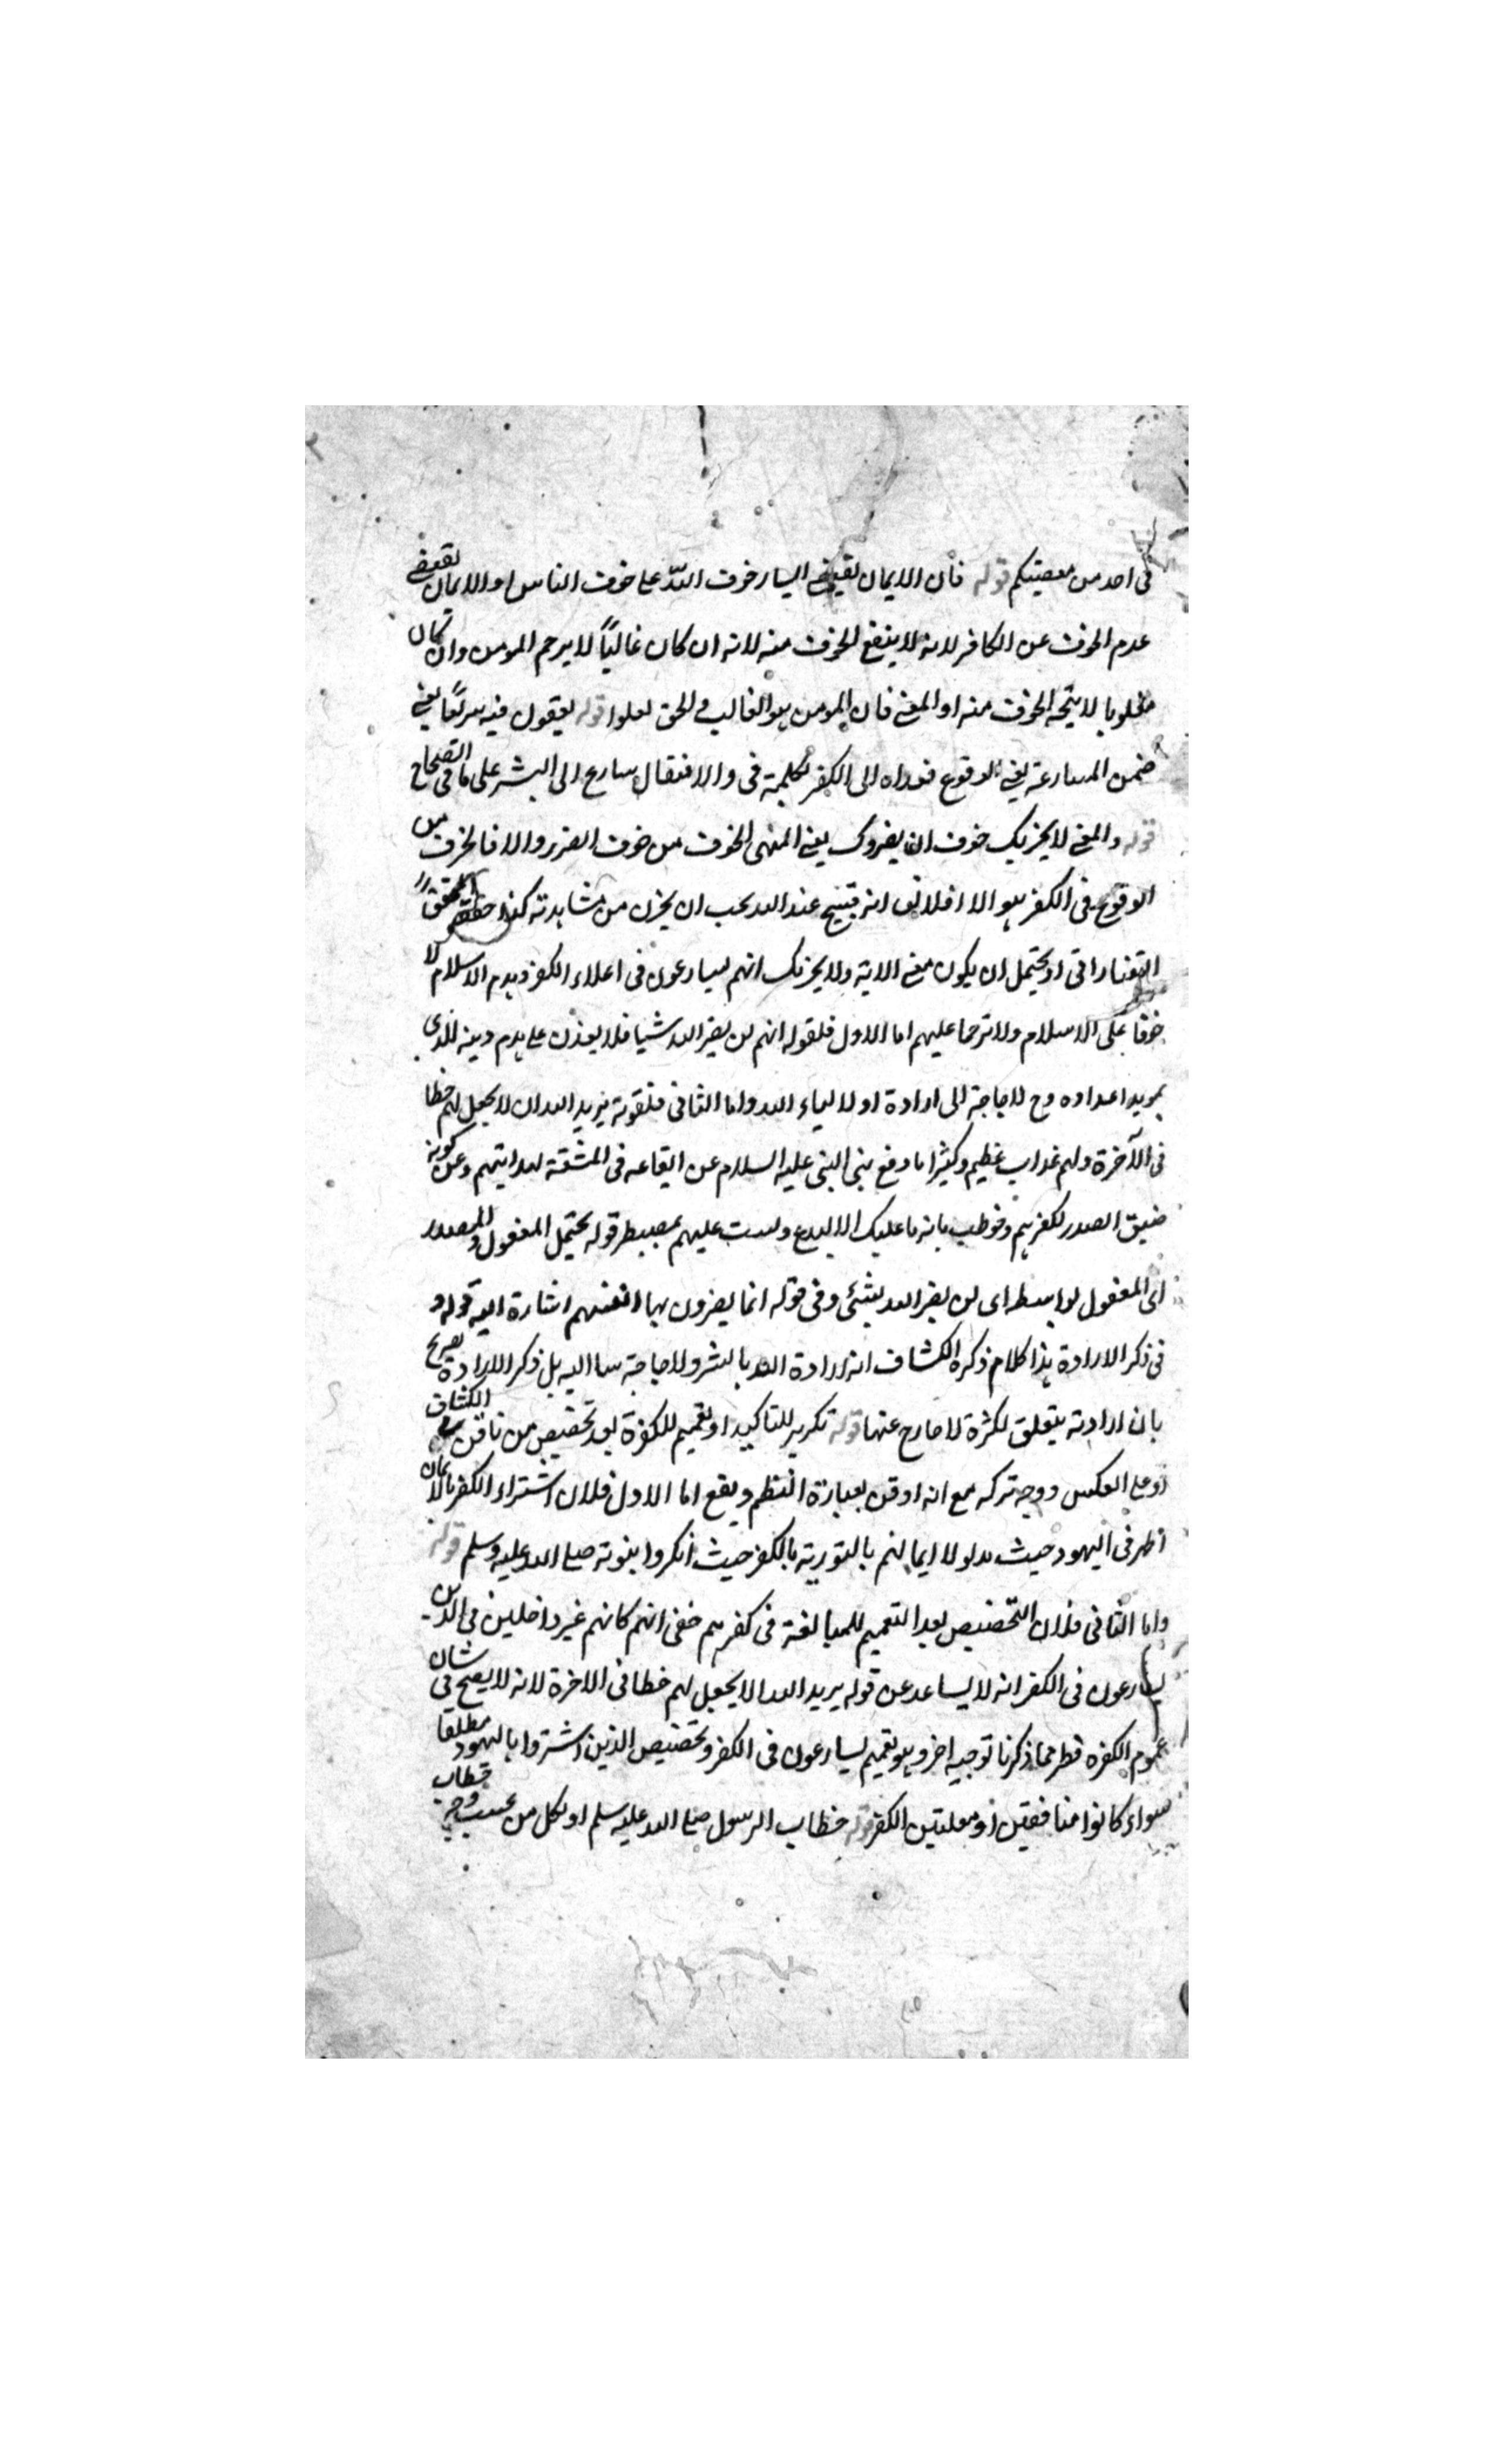 فى احد من معصيتكم قوله فان الايمان يقتضى ايثار خوف الله على خوف الناس او الايمان يقتضى
عدم الخوف عن الكافر لانه لا ينفع الخوف منه لانه ان كان غالبًا لا يرحم المومن وان كان
مغلوبا لا يتجه الخوف منه او المعنى فان المومن هو الغالب فى الحق لعلوا قوله يقعون فيه سريعًا يعنى
ضمن المسارعة يعنى الوقوع فعداه الى الكفر بكلمة فى والا فيقال سارع الى الشر على ما فى الصحاح
قوله والمعنى لا يحزنك خوف ان يضروك يعنى المنهى الخوف من خوف الضرر والا فالحزن من
الوقوع فى الكفر هو الا انه قبيح عند الله يجب ان يحزن من مشاهدته كذا المحقق
التفتازانى او يحتمل ان يكون معنى الاية ولا يحزنك انهم يسارعون فى اعلاء الكفر وهدم الاسلام لا
خوفا على الاسلام ولا ترحما عليهم اما الاول فلقوله انهم لن يضر الله شيا فلا يعذن على هدم دينه للذى
يريد اعداده وح لا حاجة الى ارادة اولالياء الله واما الثانى فلقوله يريد الله ان لا يجعل لهم حظا
فى الآخرة ولهم عذاب عظيم وكثيرا ما وقع نهى النبى عليه السلام عن ايقاعه فى المشقة لهدايتهم وعن كونه
ضيق الصدر لكفرهم وخوطب بانه ما عليك الا البلاغ ولست عليهم بمصيطر قوله يحتمل المفعول والمصدر
اى المفعول بواسطه اى لن يضر الله بشئى وفى قوله انما يضرون بها انفسهم اشارة اليه قوله و
فى ذكر الارادة هذا كلام ذكره الكشاف انه ارادة الله بالشر ولا حاجة بنا اليه بل ذكر الارادة يصرح
بان ارادته يتعلق لكثرة لا خارج عنها قوله تكرير للتاكيد او تعميم للكفرة بعد تخصيص من نافق الكشاف
او على العكس ووجه تركه مع انه اوفق بعبارة النظم ويقع اما الاول فلان اشتراء الكفر بالايمان
اظهر فى اليهود حيث بدلوا ايمانهم بالتورية بالكفر حيث انكروا بنوته صلى الله عليه وسلم قوله
واما الثانى فلان التخصيص بعد التعميم للمبالغة فى كفرهم حفى انهم كانهم غير داخلين فى الذين
يسارعون فى الكفر انه لا يساعد عن قوله يريد الله الا يجعل لهم حظا فى الاخرة لانه لا يصح فى شان
عموم الكفره فظر مما ذكرنا توجيه اخر وهو تعميم يسارعون فى الكفر وتخصيص الذين اشتروا باليهود مطلقا
سواء كانوا منافقين او معلنين الكفر قوله خطاب الرسول صلى الله عليه سلم او لكل من